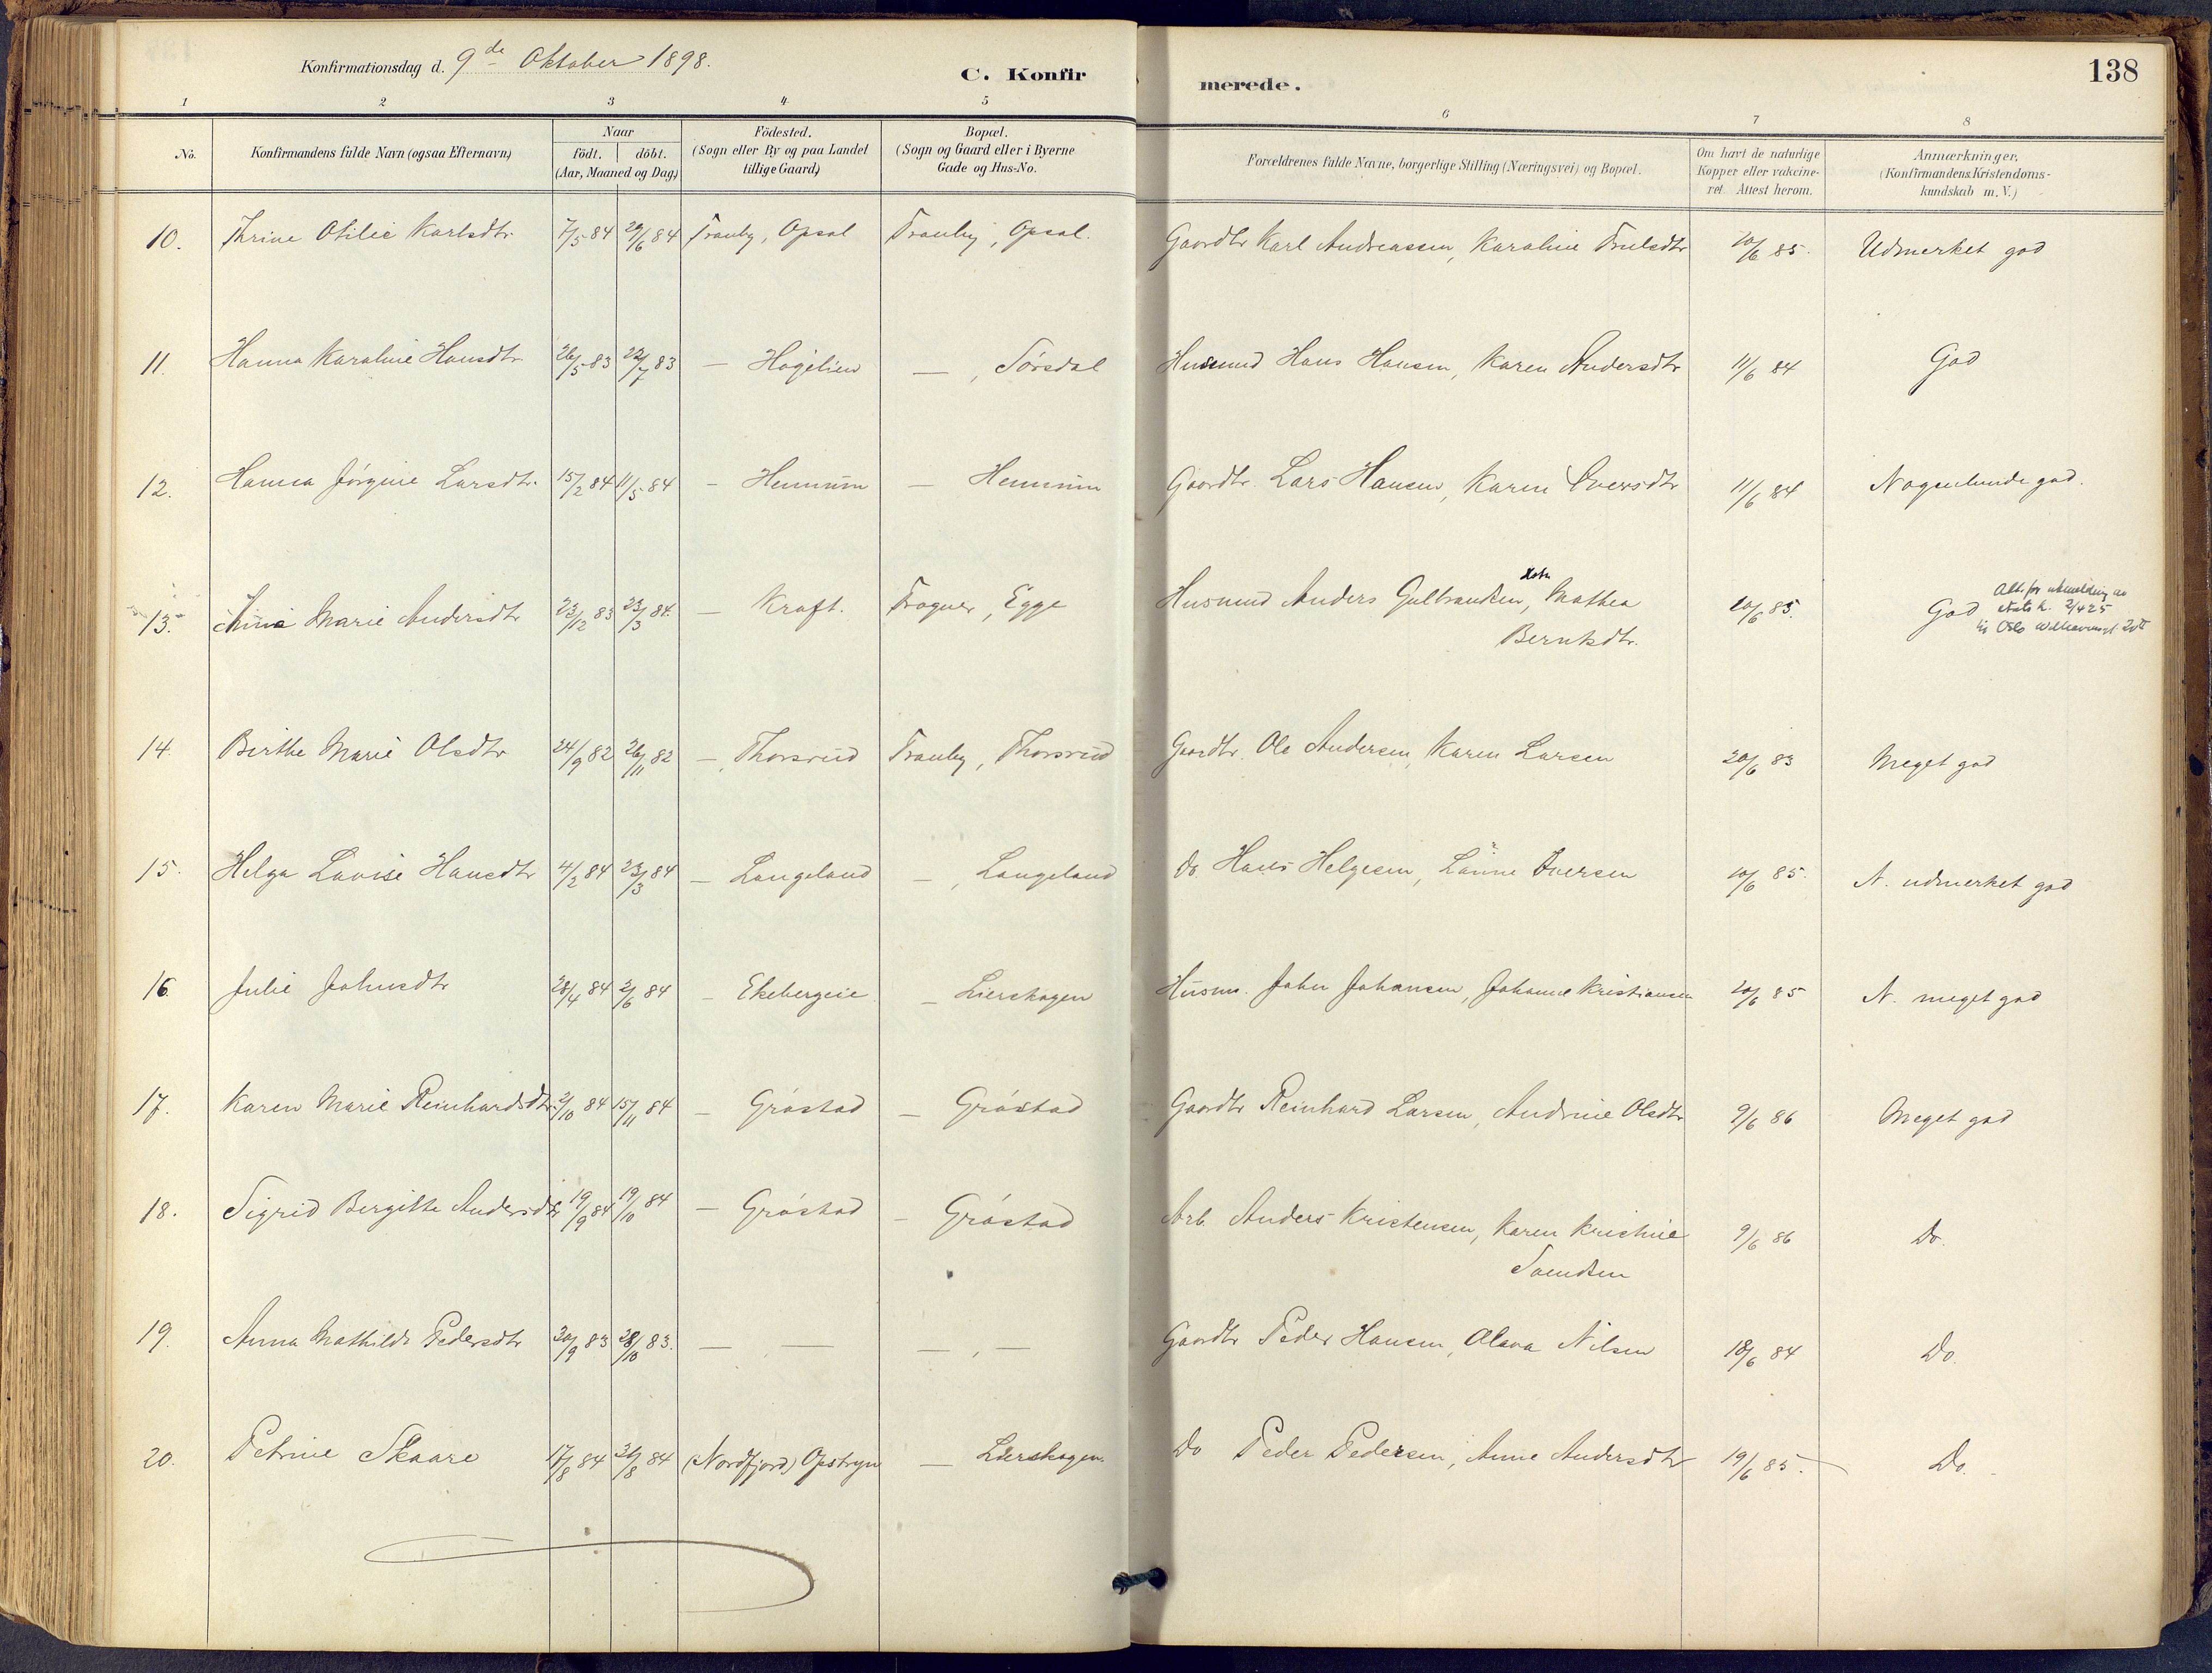 Konfirmationsdag d. 9de Oktober 1898.
C. Konfirmerede.
138
1 2 3 4 5 6 7 8
No.
Konfirmandens fulde Navn (ogsaa Efternavn)
Naar
födt. döbt.
(Aar, Maaned og Dag)
Födested.
(Sogn eller By og paa Landet
tillige Gaard)
Bopæl.
(Sogn og Gaard eller i Byerne
Gade og Hus-No.
Forældrenes fulde Navne, borgerlige Stilling (Næringsvei) og Bopæl.
Om havt de naturlige
Kopper eller vakcine-
ret. Attest herom.
Anmærkninger.
(Konfirmandens Kristendoms-
kundskab m. V.)
10. Thrine Otilie Karlsdtr. 7/5 84 29/6 84 Tranby, Opsal Tranby, Opsal. Gaardbr Karl Andreassen, Karoline Trulsdtr 20/6 85. Udmerket god
11. Hanna Karoline Hansdtr 26/5 83 22/7 83 — Høgelien — , Sørsdal Husmnd Hans Hansen, Karen Andersdtr 11/6 84 God
12. Hanna Jørgine Larsdtr. 15/2 84 11/5 84 — Hennum — Hennum Gaardbr. Lars Hansen, Karen Iversdtr 11/6 84 Nogenlunde god.
13. Anna Marie Andersdtr 23/12 83 23/3 84. — Kraft. Frogner, Egge Husmnd Anders Gulbrandsen, Mathea
Berntsdtr. 20/6 85. God
Att. for utmelding av
2/4 25
14. Birthe Marie Olsdtr 24/9 82 26/11 82 — , Thorsrud Tranby, Thorsrud Gaardbr. Ole Andersen, Karen Larsen 20/6 83 Meget god
15. Helga Lovise Hansdtr 4/2 84 23/3 84 — Langeland — , Langeland Do Hans Helgesen, Iversen 20/6 85. N. udmerket god
16. Julie Johnsdtr 28/4 84 2/6 84 — Ekebergeie — Lierskogen Husm. John Johansen, Johanne Kristiansen 20/6 85 N. meget god
17. Karen Marie Reinhardsdtr. 2/10 84 15/11 84 — Gröstad — Gröstad Gaardbr Reinhard Larsen, Andrine Olsdtr 9/6 86 Meget god
18. Sigrid Bergitte Andersdtr 19/9 84 19/10 84 — Gröstad — Gröstad Arb. Anders Kristensen, Karen Kristine
Svendsen 9/6 86 Do.
19. Anna Mathilde Pedersdtr 30/9 83 28/10 83. — — — , — Gaardbr Peder Hansen, Olava Nilsen 18/6 84 Do.
20. Petrine Skaare 17/8 84 31/8 84 (Nordfjord) Opstryn — Lierskogen. Do Peder Pedersen, Anne Andersdtr 19/6 85. Do.